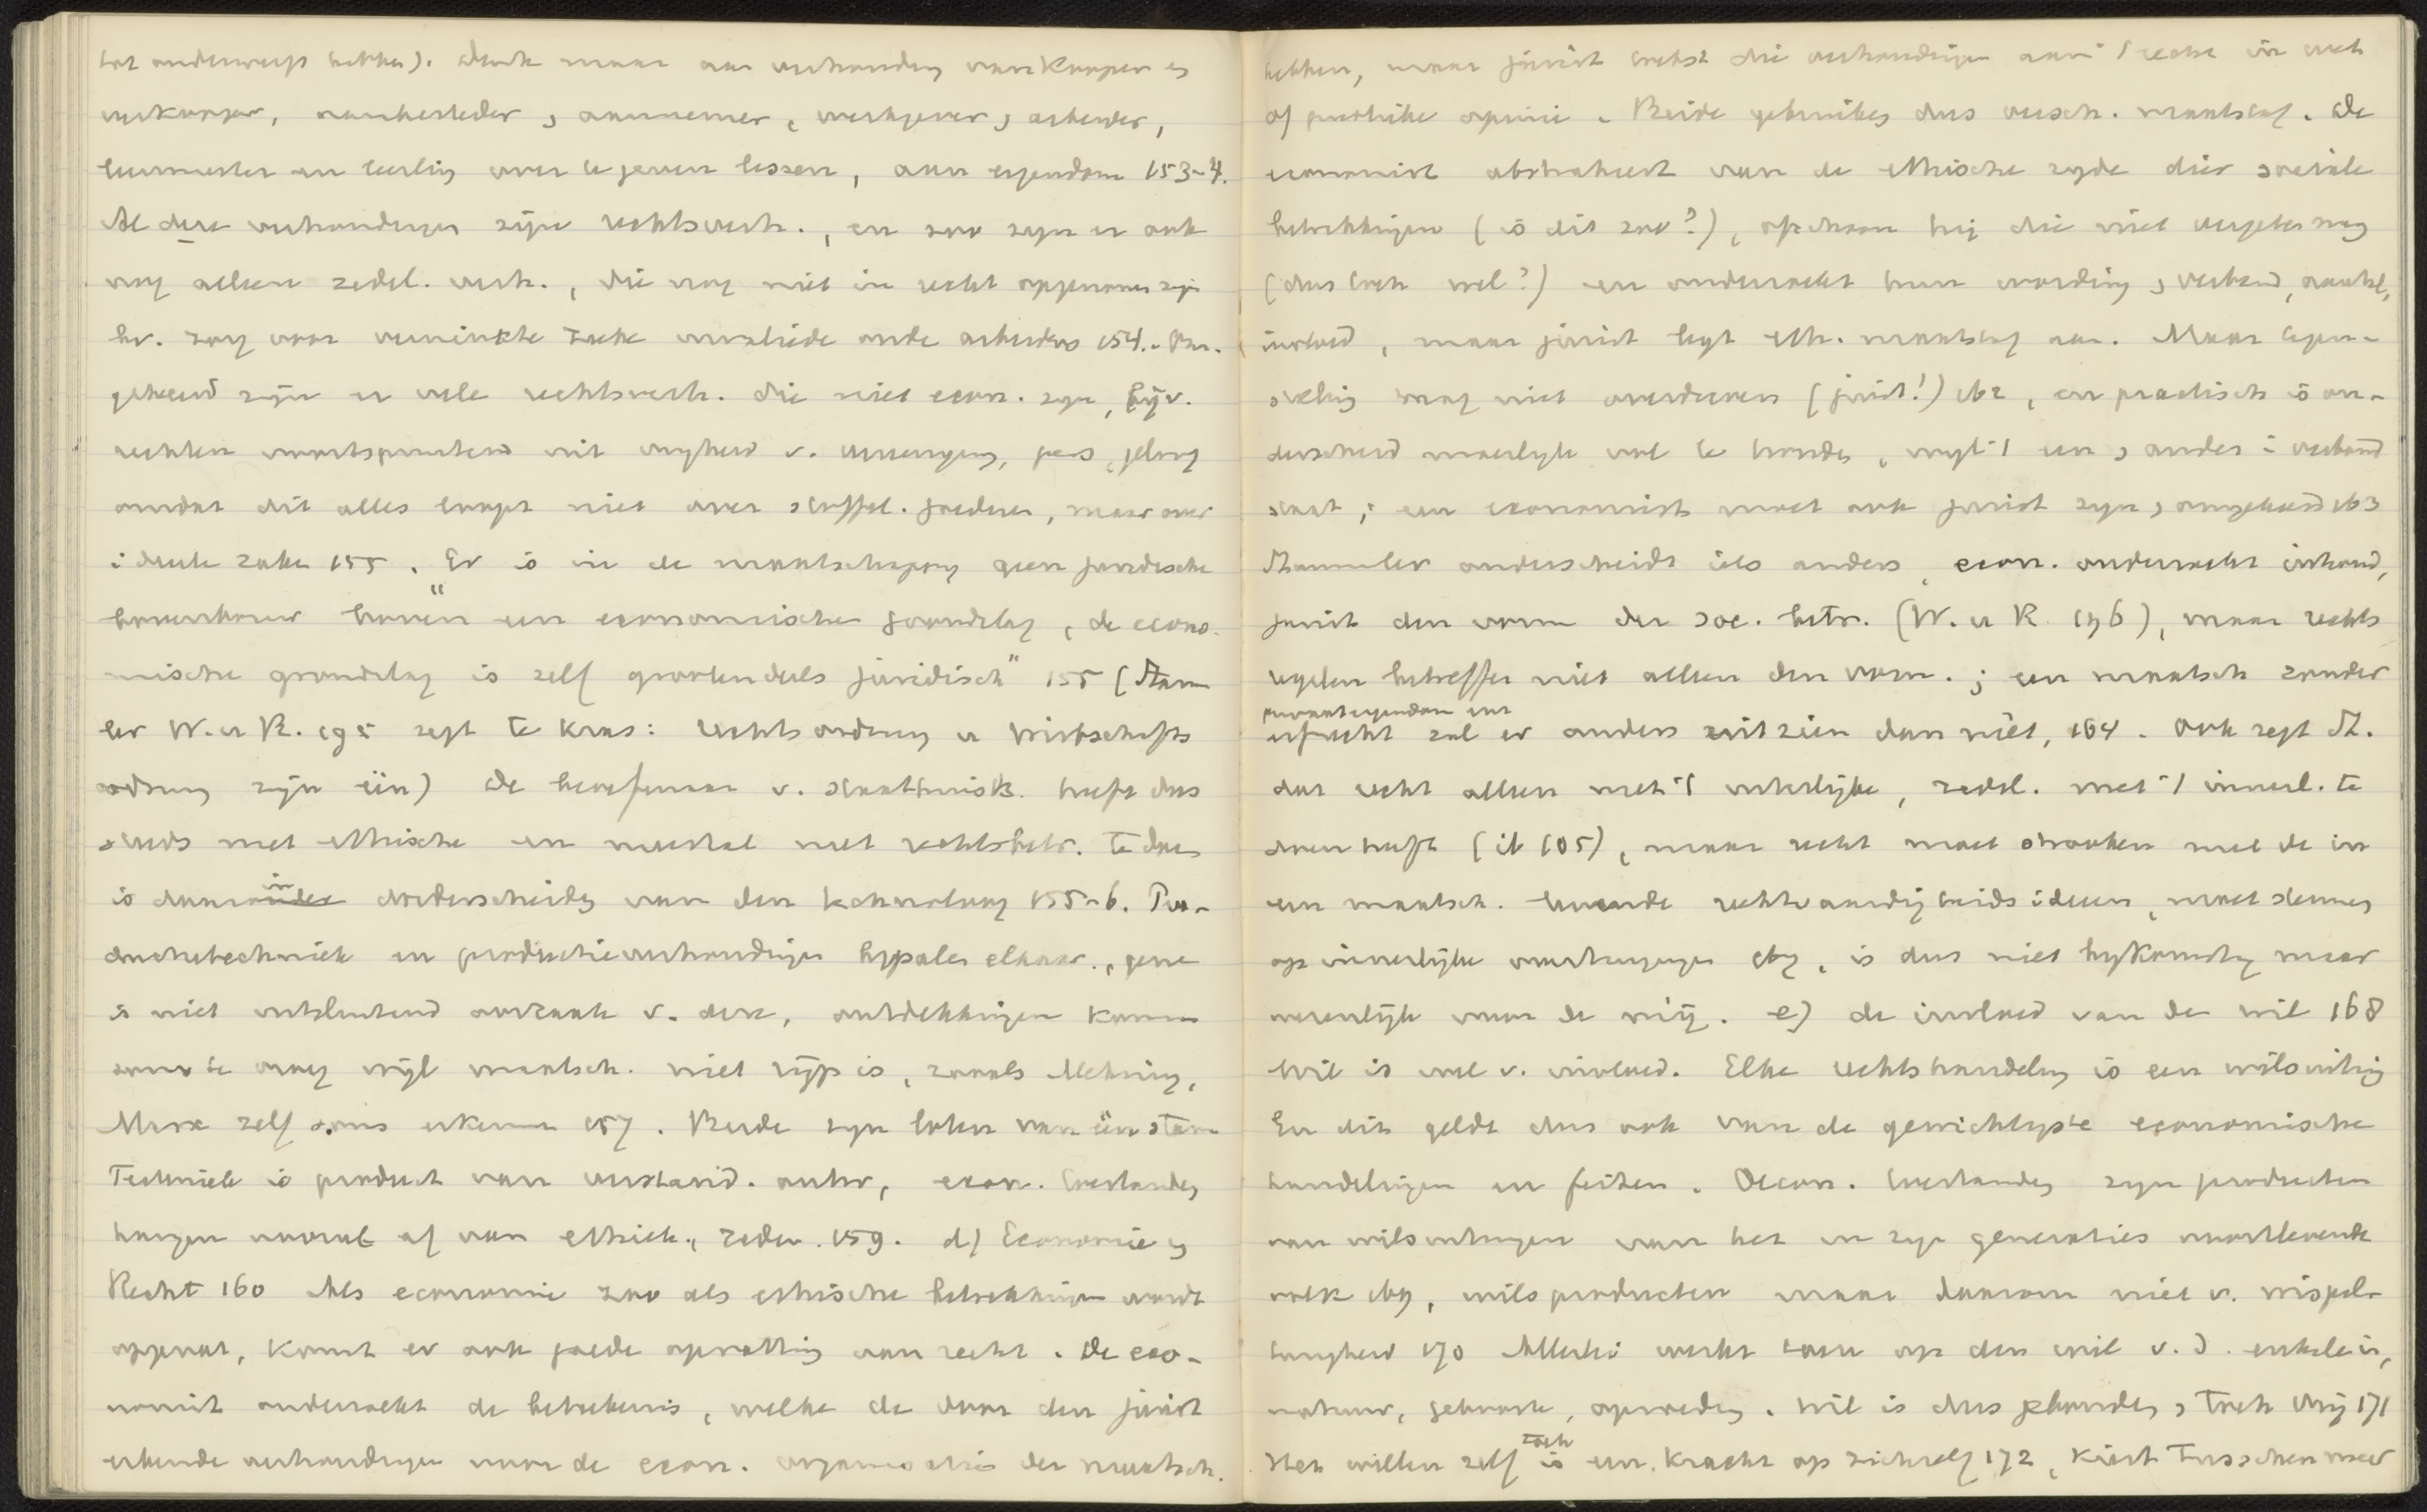 tot onderwerp hebben). Denk maar aan verhouding van Kooper en
verkooper, aanbesteder, aannemer, werkgever, arbeider,
leermeester en leerling over te geven lessen, aan eigendom 153-4.
Al deze verhoudingen zijn rechtsverh., en zoo zijn er ook
nog alleen zedel. verh., die nog niet in recht opgenomen zijn
bv. zorg voor verminkte zieke invalide oude arbeiders 154. Om-
gekeerd zijn er vele rechtsverh. die niet econ. zijn, bijv.
rechten voortspruitend uit vrijheid v. vereeniging, pers, geloof
omdat dit alles loopt niet over stoffel. goederen, maar over
ideale zaken 155. "Er is in de maatschappij geen juridische
bovenbouw boven een economische grondslag, de econo-
mische grondslag is zelf grootendeels juridisch" 155 (Stamm
ler W. u R. 195 zegt te kras: rechtsordnung u Wirtschafts
ordnung zijn één) De beoefenaar v. staathuisk. heeft dus
steeds met ethische en meestal met rechtsbetr. te doen
is daarin onderscheiden van den technoloog 155-6. Pro-
ductietechniek en productieverhoudingen bepalen elkaar, gene
is niet uitsluitend oorzaak v. deze, ontdekkingen komen
soms te vroeg wijl maatsch. niet rijp is, zooals Mehring,
Marx zelf soms erkennen 157. Beide zijn loten van één stam
Techniek is product van verstand. arbr, econ. toestanden
hangen vooral af van ethiek, zeden. 159. d) Economie en
Recht 160 Als economie zoo als ethische betrekkingen wordt
opgevat, komt er ook goede opvatting van recht. De eco-
nomist onderzoekt de beteekenis, welke de door den jurist
erkende verhoudingen voor de econ. organisatie der maatsch.
hebben, maar jurist toetst die verhoudingen aan 't recht in wet
of publieke opinie. Beide gebruiken dus versch. maatstaf. De
economist abstraheert van de ethische zijde dier sociale
betrekkingen (is dit zoo?), ofschoon hij die niet vergeten mag
(dus toch wel?) en onderzoekt hun wording, verband,
invloed, maar jurist legt eth. maatstaf aan. Maar tegen-
stelling mag niet overdreven (juist!) 162, en practisch is on-
derscheid moeilijk vol te houden, wijl 't een, ander in verband
staat; een economist moet ook jurist zijn, omgekeerd 163
Stammler onderscheidt iets anders, econ. onderzoekt inhoud,
jurist den vorm der soc. betr. (W. u R. 196), maar rechts
regelen betreffen niet alleen den vorm.; een maatsch zonder
privaateigendom en
erfrecht zal er anders uitzien dan niet, 164. Ook zegt St.
dat recht alleen met 't uiterlijke, zedel. met 't innerl. te
doen heeft (ib 105), maar recht moet strooken met de in
een maatsch. levende rechtvaardigheidsideeën, moet steunen
op innerlijke overtuigingen 167, is dus niet bijkomstig maar
wezenlijk voor de mij. e) de invloed van de wil 168
Wil is wel v. invloed. Elke rechtshandeling is een wilsuiting
En dit geldt dus ook van de gewichtigste economische
handelingen en feiten. Oecon. toestanden zijn producten
van wilsuitingen van het in zijn generaties voortlevende
volk 169, wilsproducten maar daarom niet v. wispel-
turigheid 170 Allerlei werkt toch op den wil v. d. enkele in,
natuur, geboorte, opvoeding. Wil is dus gebonden, toch vrij 171
Het willen zelf toch is een kracht op zichzelf 172, kiest tusschen meer